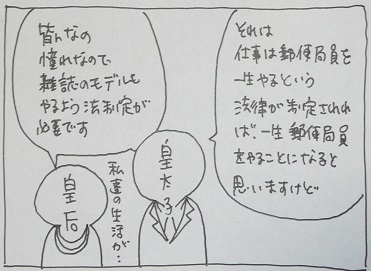 それは
仕事は郵便局員を
一生やるという
法律が制定されれ
ば一生郵便局員
をやることになると
思いますけど
皆んなの
憧れなので
雑誌のモデルも
やるよう法制定が
必要です
皇太子
私達の生活が…
皇后